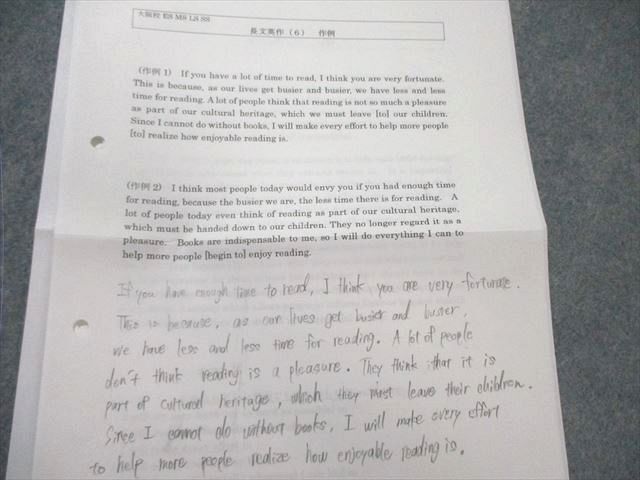 大阪校 ES MS LS SS
長文英作（6） 作例
（作例 1） If you have a lot of time to read, I think you are very fortunate.
This is because, as our lives get busier and busier, we have less and less
time for reading. A lot of people think that reading is not so much a pleasure
as part of our cultural heritage, which we must leave [to] our children.
Since I cannot do without books, I will make every effort to help more people
[to] realize how enjoyable reading is.
（作例 2） I think most people today would envy you if you had enough time
for reading, because the busier we are, the less time there is for reading. A
lot of people today even think of reading as part of our cultural heritage,
which must be handed down to our children. They no longer regard it as a
pleasure. Books are indispensable to me, so I will do everything I can to
help more people [begin to] enjoy reading.
If you have enough time to read, I think you are very fortunate.
This is because, as our lives get busier and busier,
we have less and less time for reading. A lot of people
don't think reading is a pleasure. They think that it is
part of cultural heritage, which they must leave their children.
Since I cannot do without books, I will make every effort
to help more people realize how enjoyable reading is.